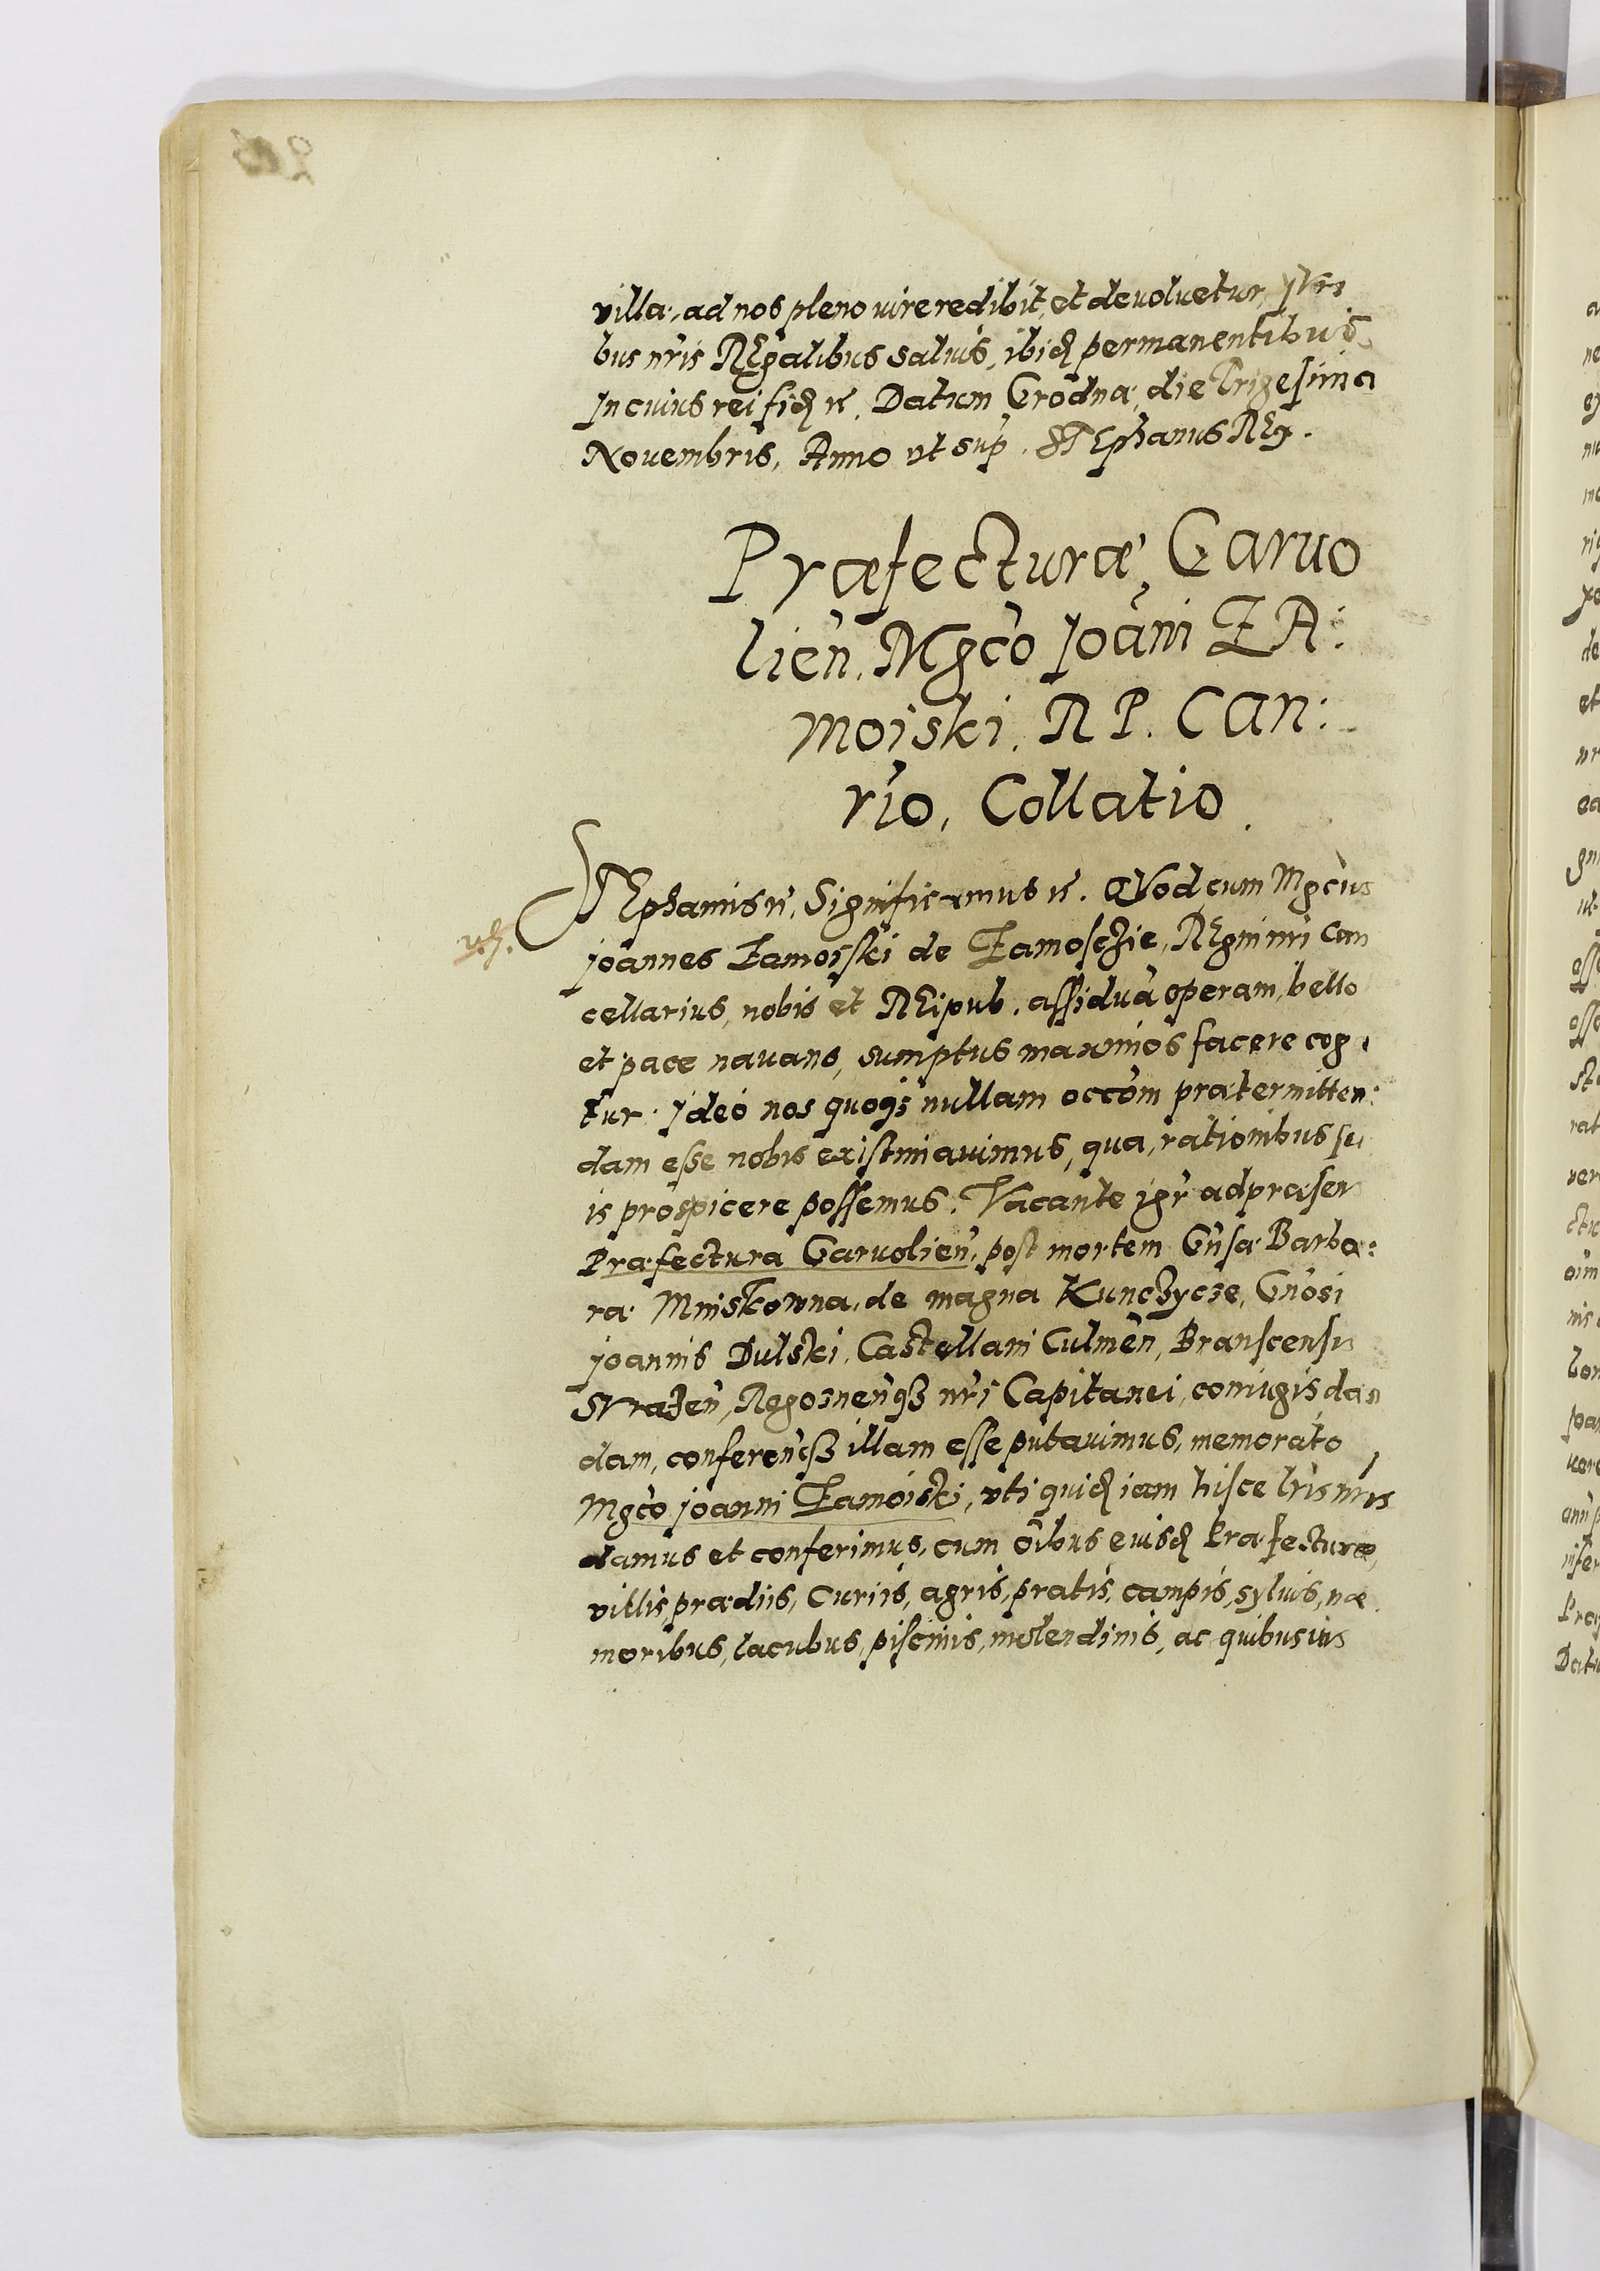 villa, ad nos pleno iure redibit, et devoluetur, Juri
bus nr̃is REgalibus saluis, ibiđ permanentibus
In cuius rei fiđ rẽ. Datum Grodna, die Trigesima
Novembris, Anno ut sup. STEphanus REx.
Præfecturæ Garuo
lieñ. Mgco Joãni ZA:
moiski. R P. Can:
rio, Collatio.
STEphanus rẽ, Significamus rẽ. QVod, cum Mgcus
joannes Zamoiski de Zamosczie, REgni nri Can
cellarius, nobis et REipub. assiduã operam, bello
et pace nauans, sumptus maximos facere cogi
tur. Ideo nos quoqꝫ nullam occõm prætermitten:
dam esse nobis existimauimus, qua, rationibus su
is prospicere possemus. Vacante igr̃ ad præsens
Præfectura Garuolieñ, post mortem Gñsæ Barba:
ræ Mniskowna, de magna Kunczycze, Gñosi
joannis Dulski, Castellani Culmeñ, Branscensis
SVrazeñ, Rogosneñqꝫ nr̃i Capitanei, coniugis, dan
dam, conferenđqꝫ illam esse putauimus, memorato
Mgco joanni Zamoiski, uti quiđ iam hisce lr̃is nr̃is
damus et conferimus, cum oĩbus eiusđ Præfecturæ,
villis prædiis, Curiis, agris, pratis, campis, syluis, næ
moribus, lacubus, piscinis, molendinis, ac quibusuis